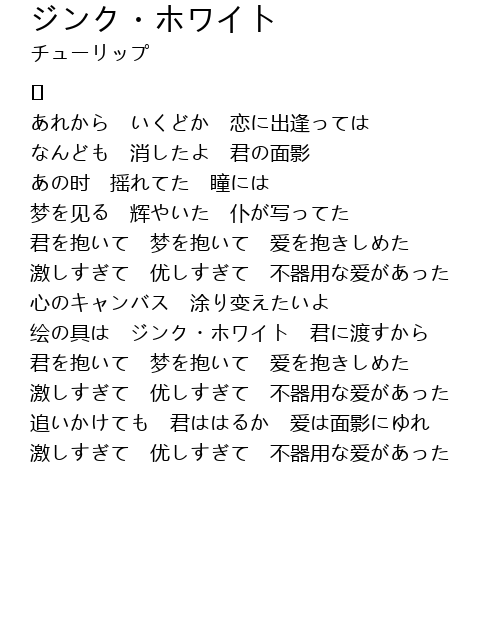 ジンク・ホワイト
チューリップ
あれから　いくどか　恋に出逢っては
なんども　消したよ　君の面影
あの时　揺れてた　瞳には
梦を见る　辉やいた　仆が写ってた
君を抱いて　梦を抱いて　爱を抱きしめた
激しすぎて　优しすぎて　不器用な爱があった
心のキャンバス　涂り变えたいよ
绘の具は　ジンク・ホワイト　君に渡すから
君を抱いて　梦を抱いて　爱を抱きしめた
激しすぎて　优しすぎて　不器用な爱があった
追いかけても　君ははるか　爱は面影にゆれ
激しすぎて　优しすぎて　不器用な爱があった